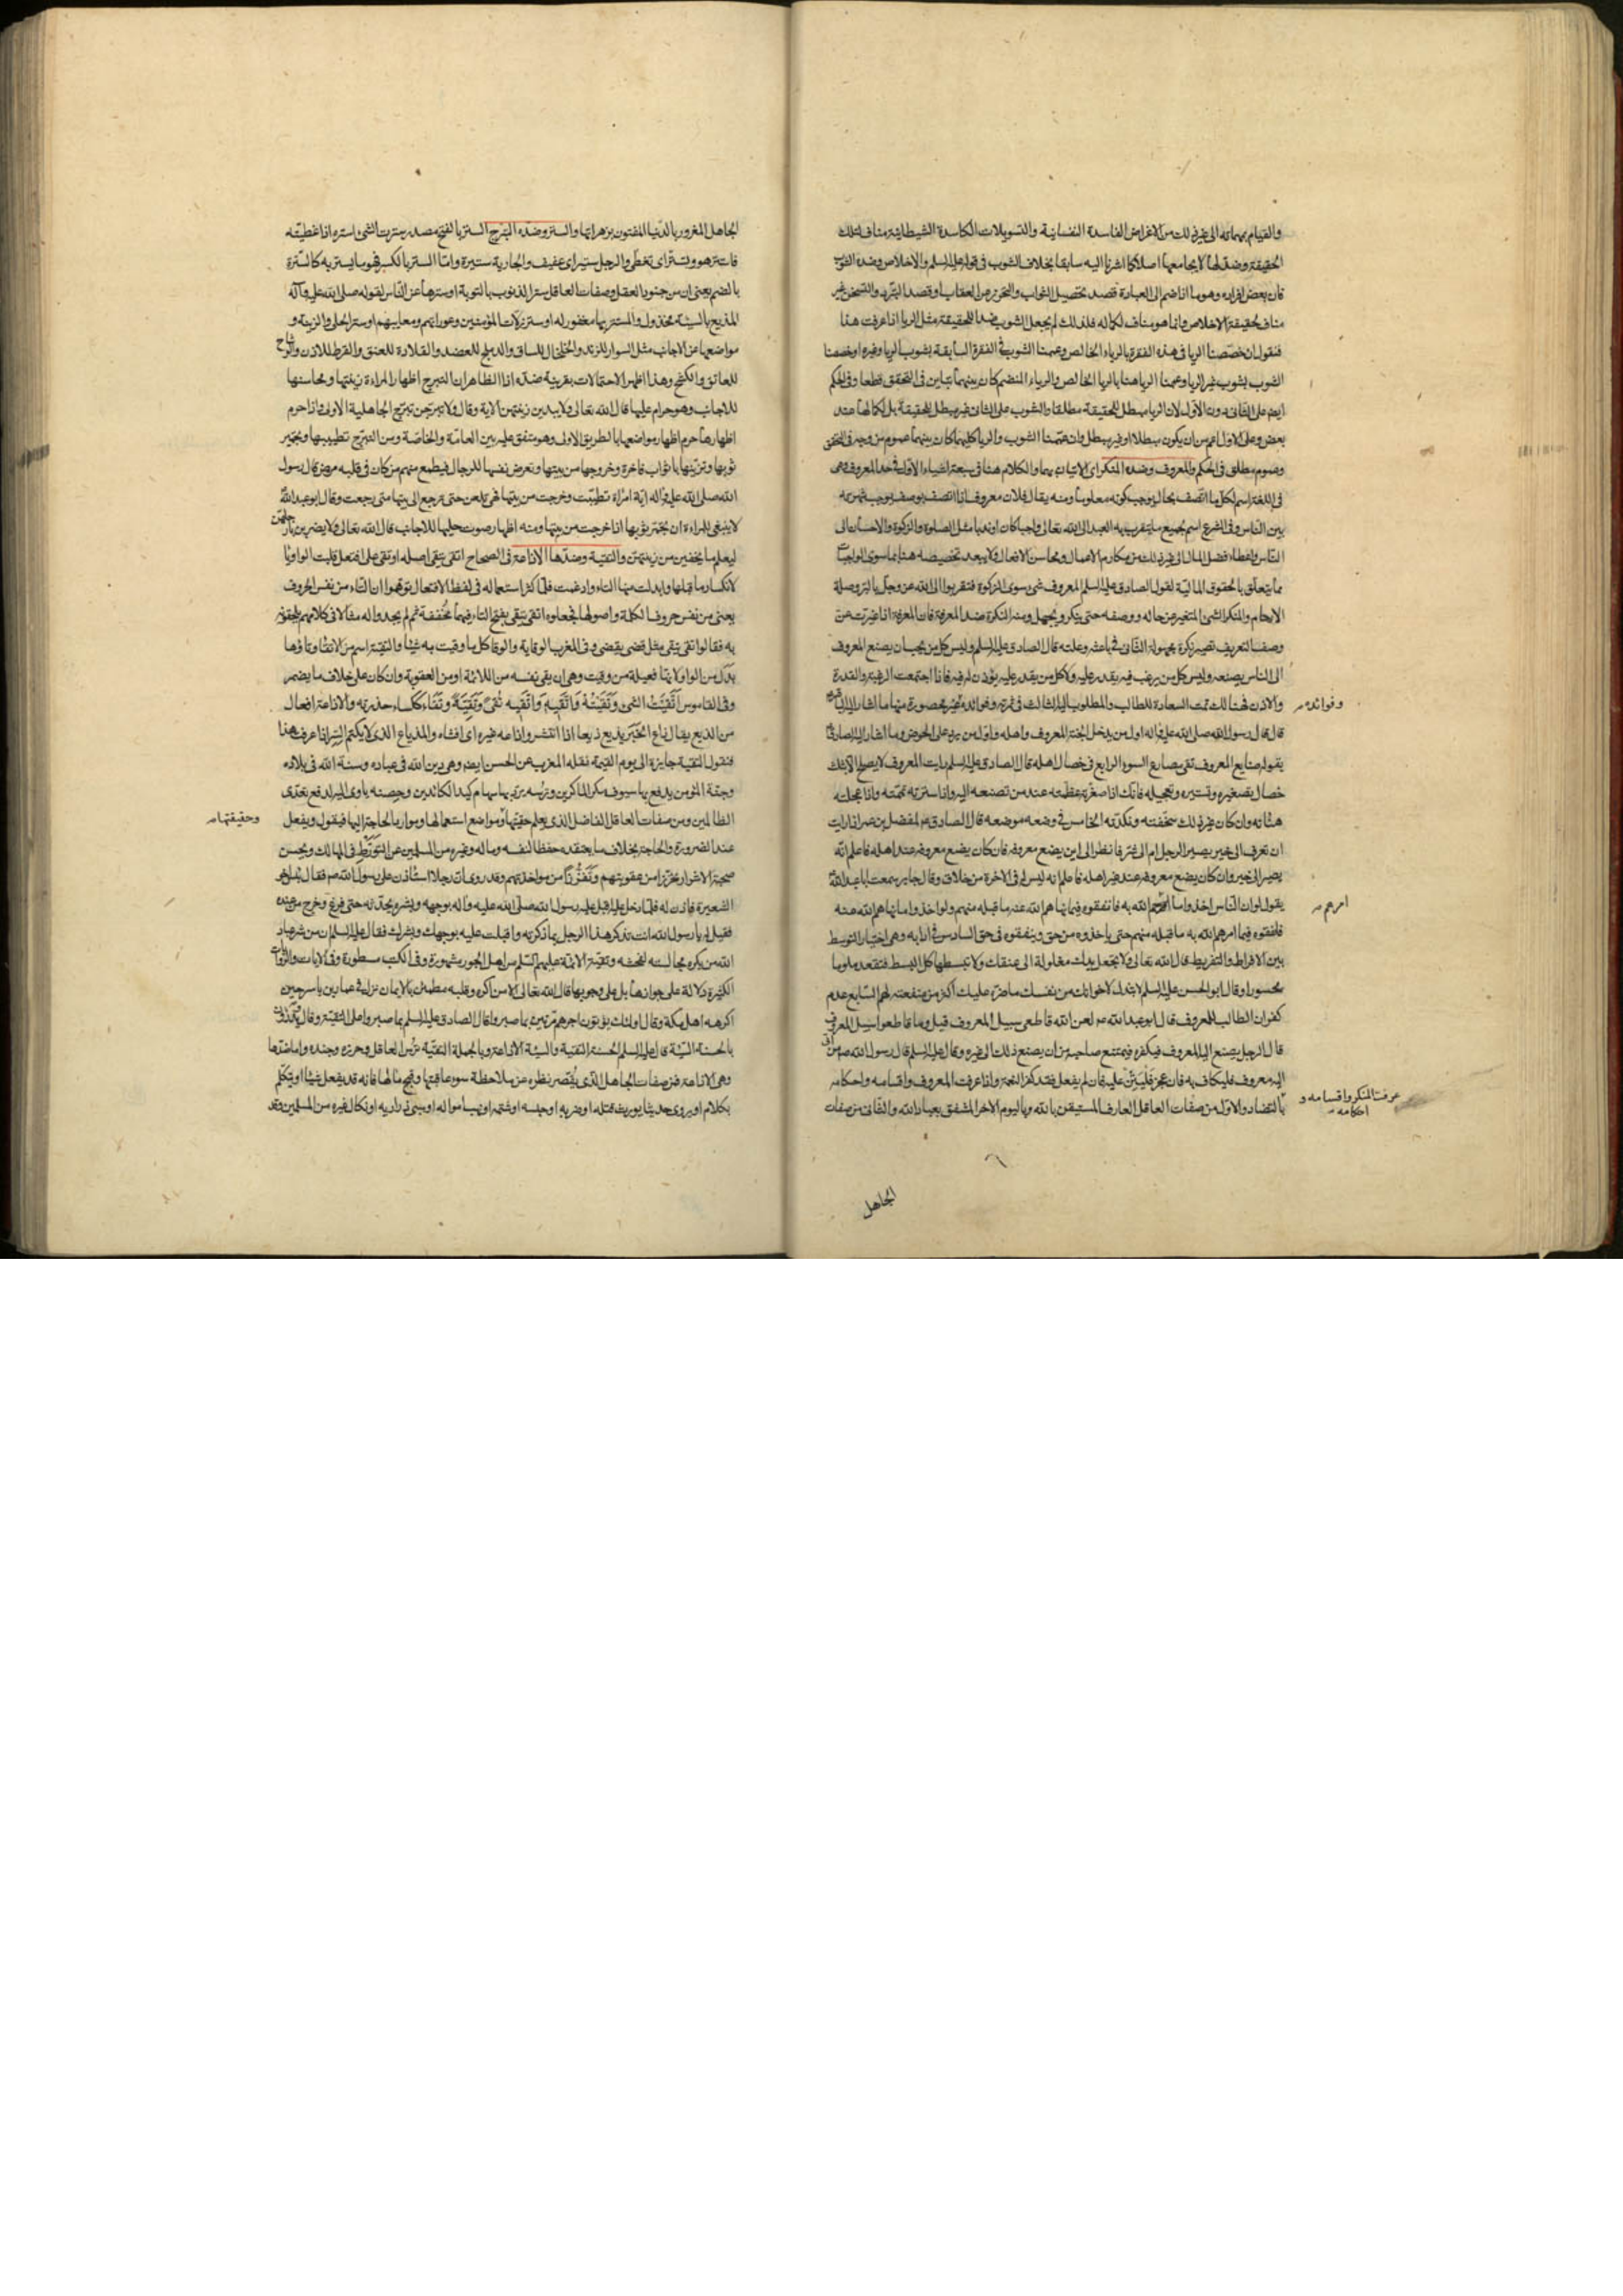 والقيام بمهماته الى غير ذلك من الاغراض الفاسدة النفسانية والتسويلات الكاسدة الشيطانية مناف لتلك
الحقيقة وضد لها لا يجامعها اصلا كما اشرنا اليه سابقا بخلاف الشوب فى قوله عليه السلم والاخلاص وضده الشوب
فان بعض افراده وهو ما اذا ضم الى العبادة قصد تحصيل الثواب والتحرز من العقاب او قصد التبرد والتسخن غير
مناف لحقيقة الاخلاص وانما هو مناف لكماله فلذلك لم يجعل الشوب ضدا للحقيقة مثل الريا اذا عرفت هذا
فنقول ان خصصنا الريا فى هذه الفقرة بالرياء الخالص وعممنا الشوب فى الفقرة السابقة بشوب الريا وغيره او خصصنا
الشوب بشوب غير الريا وعممنا الريا هنا بالريا الخالص والرياء المنضم كان بينهما تباين فى التحقق قطعا وفى الحكم
ايضا على الثانى دون الاول لان الريا مبطل للحقيقة مطلقا والشوب على الثانى غير مبطل للحقيقة بل لكمالها عند
بعض وعلى الاول اعم من ان يكون مبطلا او غير مبطل وان عممنا الشوب والريا كليهما كان بينهما عموم من وجه فى التحقق
وعموم مطلق فى الحكم والمعروف وضده المنكر اى الاتيان بهما والكلام هنا فى سبعة اشياء الاول فى حد المعروف وهى
فى اللغة اسم لكل ما اتصف بحال يوجب كونه معلوما ومنه يقال فلان معروف اذا اتصف بوصف يوجب شهرته
بين الناس وفى الشرع اسم جميع ما يتقرب به العبد الى الله تعالى واجبا كان او ندبا مثل الصلوة والزكوة والاحسان الى
الناس واعطاء فضل المال الى غير ذلك من مكارم الاعمال ومحاسن الافعال ولا يبعد تخصيصه هنا بما سوى الواجبات
مما يتعلق بالحقوق المالية لقول الصادق عليه السلم المعروف شئ سوى الزكوة فتقربوا الى الله عز وجل بالبر وصلة
الارحام والمنكر الشئ المتغير عن حاله ووصفه حتى ينكر ويجهل ومنه النكرة ضد المعرفة فان المعرفة اذا غيرت عن
وصف التعريف تصير نكرة مجهولة الثانى فى باعثه وعلته قال الصادق عليه السلم وليس كل من يحب ان يصنع المعروف
الى الناس يصنعه وليس كل من يرغب فيه يقدر عليه ولا كل من يقدر عليه يؤذن له فيه فاذا اجتمعت الرغبة والقدرة
والاذن فهنالك تمت السعادة للطالب والمطلوب اليه الثالث فى ثمرته وفوائده غير محصورة منها ما اشار اليه
وفوائده
قال قال رسول الله صلى الله عليه واله اول من يدخل الجنة المعروف واهله واول من يرد على الحوض وما اشار اليه الصادق
بقوله صنايع المعروف تقى مصارع السوء الرابع فى خصال اهله قال الصادق عليه السلم رايت المعروف لا يصلح الا بثلث
خصال تصغيره وتستيره وتعجيله فانك اذا صغرته عظمته عند من تصنعه اليه واذا سترته تممته واذا عجلته
هناته وان كان غير ذلك سخفته ونكدته الخامس فى وضعه موضعه قال الصادق ع لمفضل بن عمر اذا رايت
ان تعرف الى خير يصير الرجل ام الى شر فانظر الى اين يضع معروفه فان كان يضع معروفه عند اهله فاعلم انه
يصير الى خير وان كان يضع معروفه عند غير اهله فاعلم انه ليس له فى الاخرة من خلاق وقال جابر سمعت ابا عبد الله
يقول لو ان الناس اخذوا ما امرهم الله به فانفقوه فيما نهاهم الله عنه ما قبله منهم ولو اخذوا ما نهاهم الله عنه
امرهم
فانفقوه فيما امرهم الله به ما قبله منهم حتى ياخذوه من حق وينفقوه فى حق السادس فى ادابه وهى اختيار التوسط
بين الافراط والتفريط قال الله تعالى ولا تجعل يدك مغلولة الى عنقك ولا تبسطها كل البسط فتقعد ملوما
محسورا وقال ابو الحسن عليه السلم لا تبذل لاخوانك من نفسك ما ضره عليك اكثر من منفعته لهم السابع عدم
كفران الطالب للمعروف قال ابو عبد الله ع لعن الله قاطعى سبيل المعروف قيل وما قاطعوا سبيل المعروف
قال الرجل يصنع اليه المعروف فيكفره فيمتنع صاحبه من ان يصنع ذلك الى غيره وقال عليه السلم قال رسول الله ص من اتى
اليه معروف فليكاف به فان عجز فليثن عليه فان لم يفعل فقد كفر النعمة واذا عرفت المعروف واقسامه واحكامه
عرفت المنكر واقسامه و
احكامه
بالتضاد والاول من صفات العاقل العارف المستيقن بالله وباليوم الاخر المشفق بعباد الله والثانى من صفات
الجاهل
الجاهل المغرور بالدنيا المفتون بزهراتها والستر وضده التبرج الستر بالفتح مصدر سترت الشئ استره اذا غطيته
فاستتر هو وتستر اى تغطى والرجل ستير اى عفيف والجارية ستيرة واما الستر بالكسر فهو ما يستر به كالسترة
بالضم يعنى ان من جنود العقل وصفات العاقل ستر الذنوب بالتوبة او سترها عن الناس لقوله صلى الله عليه وآله
المذيع بالسيئة مخذول والمستتر بها مغفور له او ستر زلات المؤمنين وعوراتهم ومعايبهم او ستر الحلى والزينة و
مواضعها عن الاجانب مثل السوار للزند والخلخال للساق والدملج للعضد والقلادة للعنق والقرط للاذن والوشاح
للعاتق والكشح وهذا اظهر الاحتمالات بقرينة ضده اذ الظاهر ان التبرج اظهار المراءة زينتها ومحاسنها
للاجانب وهو حرام عليها قال الله تعالى ولا يبدين زينتهن الاية وقال ولا تبرجن تبرج الجاهلية الاولى واذا حرم
اظهارها حرم اظهار مواضعها بالطريق الاولى وهو متفق عليه بين العامة والخاصة ومن التبرج تطييبها وتجمير
ثوبها وتزينها باثواب فاخرة وخروجها من بيتها وتعرض نفسها للرجال فيطمع منهم من كان فى قلبه مرض قال رسول
الله صلى الله عليه واله اية امراة تطيبت وخرجت من بيتها فهى تلعن حتى ترجع الى بيتها متى رجعت وقال ابو عبد الله
لا ينبغى للمراءة ان تجمر ثوبها اذا خرجت من بيتها ومنه اظهار صوت حليها للاجانب قال الله تعالى ولا يضربن بارجلهن
ليعلم ما يخفين من زينتهن والتقية وضدها الاذاعة فى الصحاح اتقى يتقى اصله اوتقى على افتعل قلبت الواو ياء
لانكسار ما قبلها وابدلت منها التاء وادغمت فلما كثر استعماله فى لفظ الافتعال توهموا ان التاء من نفس الحروف
يعنى من نفس حروف الكلمة واصولها فجعلوه اتقى يتقى بفتح التاء فيهما مخففة ثم لم يجدوا له مثالا فى كلامهم يلحقونه
به فقالوا تقى يتقى مثل قضى يقضى وفى المغرب الوقاية والوقا كل ما وقيت به شيئا والتقية اسم من الاتقا وتاؤها
بدل من الواو لانها فعيلة من وقيت وهى ان يقى نفسه من اللائمة او من العقوبة وان كان على خلاف ما يضمر
وفى القاموس اتقيت الشئ وتقيته واتقيه اتقيه تقى وتقية وتقاء ككساء حذرته والاذاعة افعال
من الذيع يقال ذاع الخبر يذيع ذيعا اذا انتشر واذاعه غيره اى افشاه والمذياع الذى لا يكتم السر اذا عرفت هذا
فنقول التقية جايزة الى يوم القيمة نقله المغرب عن الحسن ايضا وهى دين الله فى عباده وسنة الله فى بلاده
وجنة المؤمن يدفع بها سيوف مكر الماكرين وترسه يرد بها سهام كيد الكائدين وحصنه ياوى اليه لدفع تعدى
الظالمين ومن صفات العاقل الفاضل الذى يعلم حقيتها ومواضع استعمالها وموارد الحاجة اليها فيقول ويفعل
وحقيقتها
عند الضرورة والحاجة بخلاف ما يعتقده حفظا لنفسه وماله وغيره من المسلمين عن التورط فى المهالك ويحسن
صحبة الاشرار تحرزا من عقوبتهم وتفوزا من مواخذتهم وقد روى ان رجلا استأذن على رسول الله ص فقال بئس اخو
العشيرة فاذن له فلما دخل عليه اقبل عليه رسول الله صلى الله عليه واله بوجهه وبشره يحدثه حتى فرغ وخرج من عنده
فقيل له يا رسول الله انت تذكر هذا الرجل بما ذكرته واقبلت عليه بوجهك وبشرك فقال عليه السلم ان من شر عباد
الله من يكره مجالسته لفحشه وتقية الائمة عليهم السلم من اهل الجور مشهورة وفى الكتب مسطورة وفى الايات والروايات
الكثيرة دلالة على جوازها بل على وجوبها قال الله تعالى الا من اكره وقلبه مطمئن بالايمان نزل فى عمار بن ياسر حين
اكرهه اهل مكة وقال اولئك يؤتون اجرهم مرتين بما صبروا قال الصادق عليه السلم بما صبروا على التقية وقال ويدرؤن
بالحسنة السيئة قال عليه السلم الحسنة التقية والسيئة الاذاعة وبالجملة التقية ترس العاقل وحرزه وجنده واما ضدها
وهى الاذاعة فمن صفات الجاهل الذى يقتصر نظره عن ملاحظة سوء عاقبتها وقبح مالها فانه قد يفعل شيئا او يتكلم
بكلام او يروى حديثا يورث قتله او ضربه او حبسه او شتمه او نهب امواله او سبى ذراريه او نكال غيره من المسلمين وقد